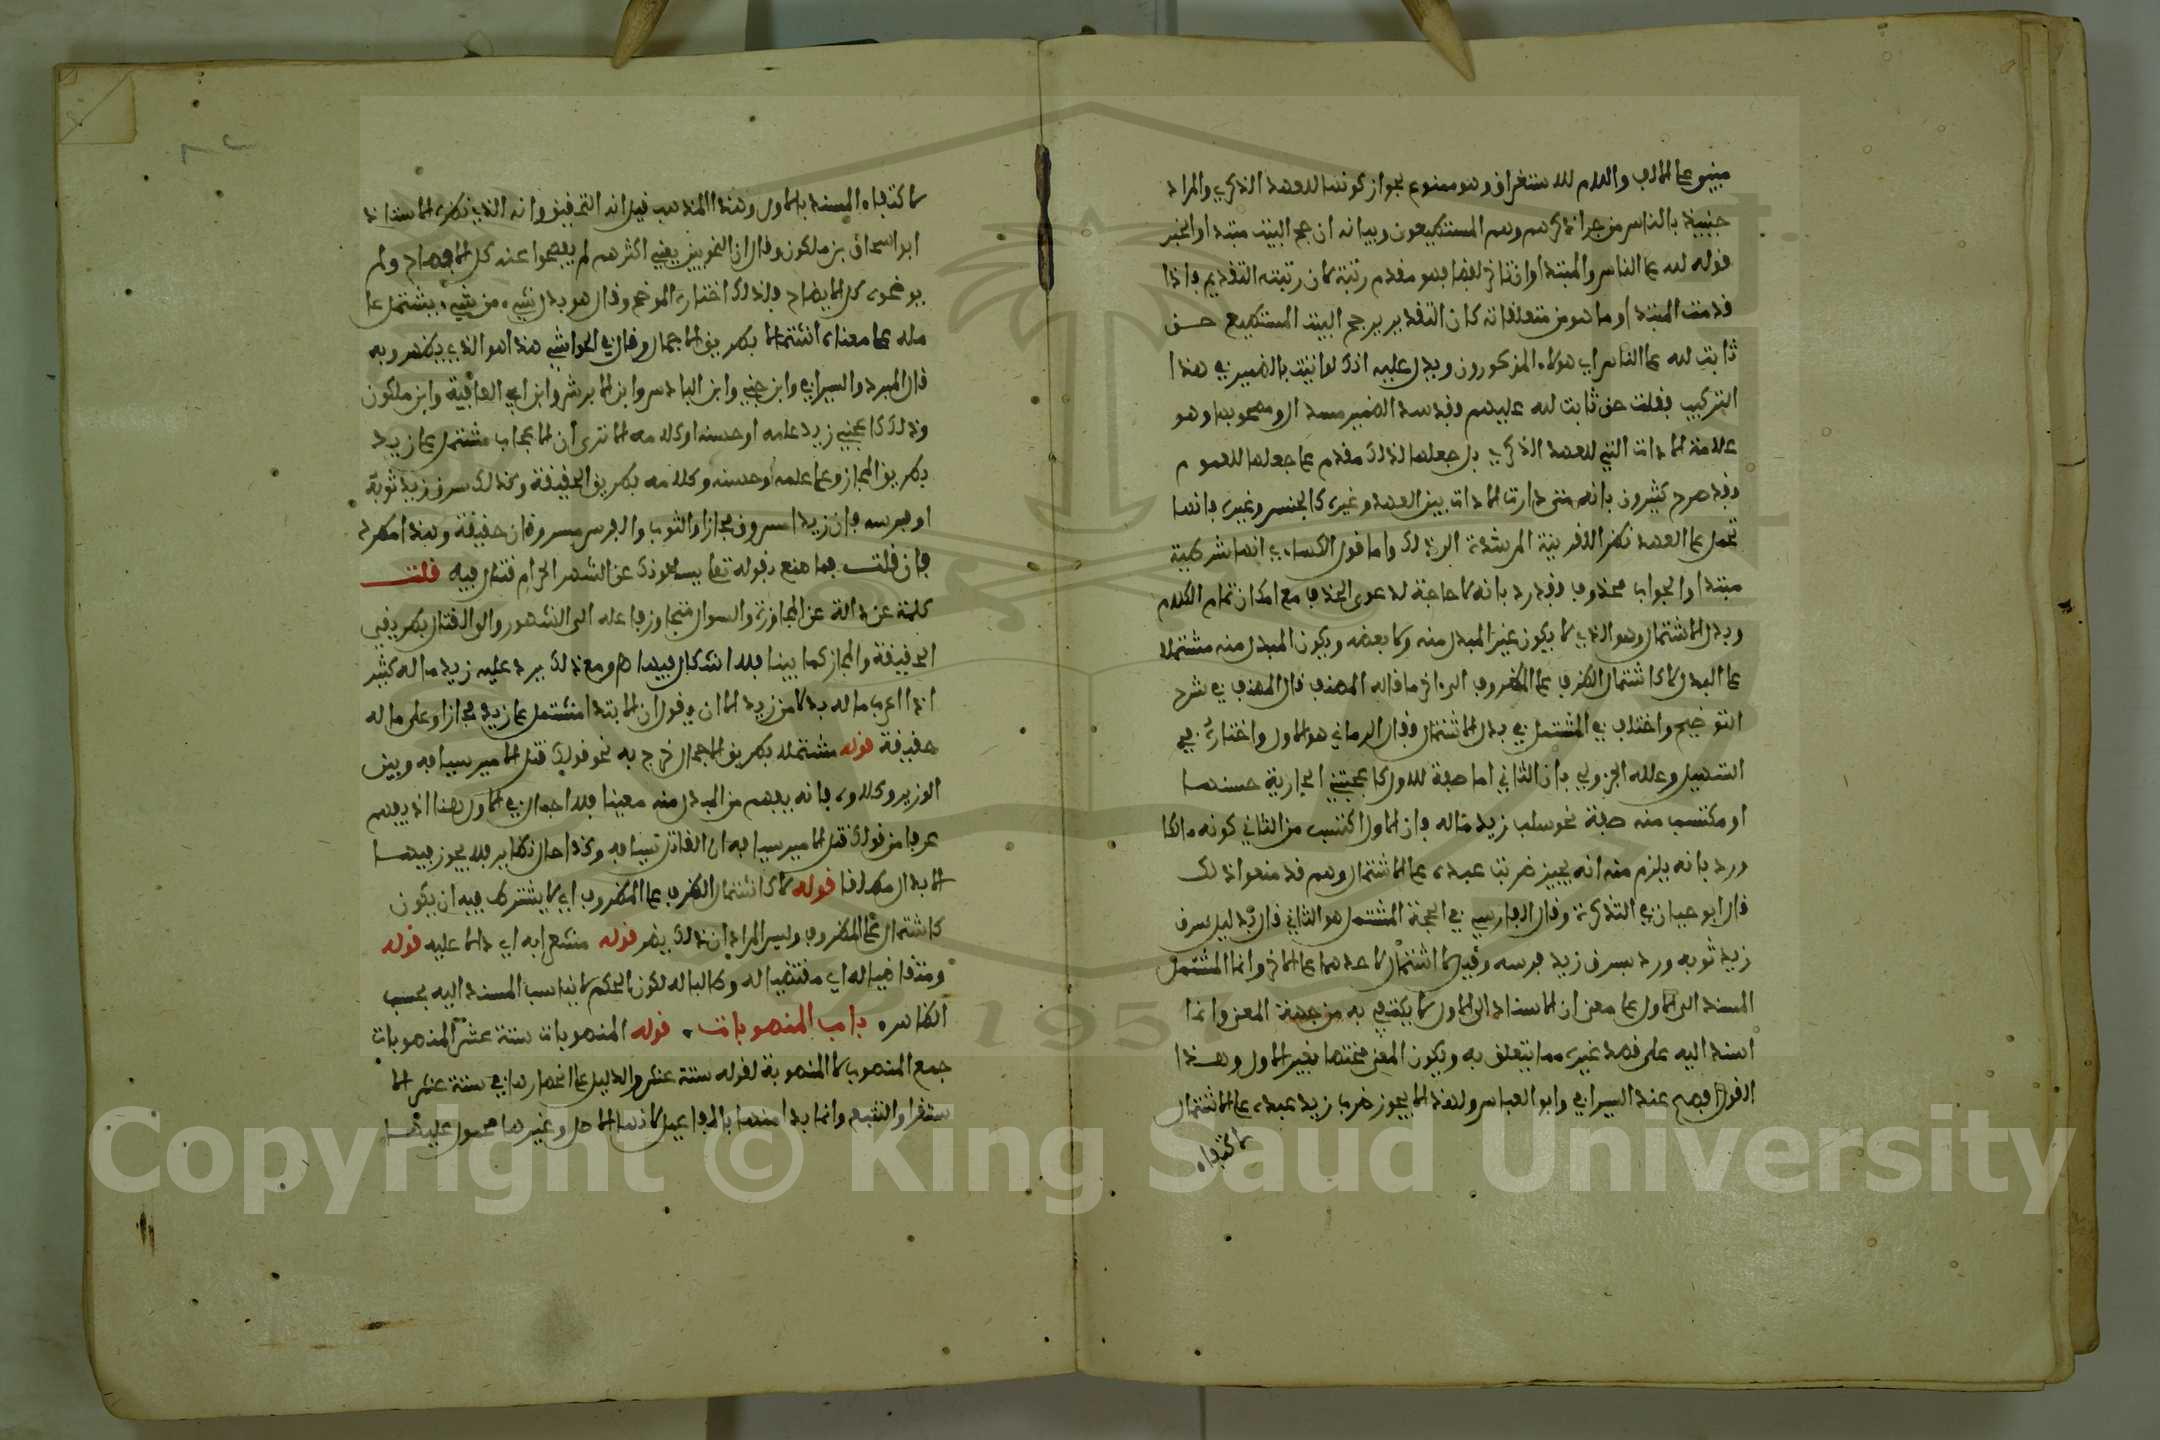 مبني على ان الالف واللام للاستغراق وهو ممنوع بجواز كونها للعهد الذكري والمراد
حينئذ بالناس من جرا ذكرهم وهم المستطيعون وبيانه ان حج البيت مبتدا والخبر
قوله لله على الناس والمبتدا وان تاخر لفظا فهو مقدم رتبة لان رتبته التقديم فاذا
قدمت المبتدا وما هو من متعلقاته كان التقدير حج البيت المستطيع حـق
ثابت لله على الناس اي هولاء المذكورون ويدل عليه انك لو اتيت بالضمير في هذا
التركيب فقلت حق ثابت لله عليهم وقد سد الضمير مسد ال ومصحوبها وهو
علامة الادات التي للعهد الذكري بل جعلها لذلك مقدم على جعلها للعموم
وقد صرح كثيرون بانه متى دارت الادات بين العهد وغيره كالجنس وغيره فانها
تحمل على العهد نظرا لقرينة المرشدة الى ذلك واما قول الكساءي انها شرطية
مبتدا والجواب محذوف فقد رد بانه لا حاجة لدعوى الحذف مع امكان تمام الكلام
وبدل الاشتمال وهو الذي لا يكون عين المبدل منه ولا بعضه ويكون المبدل منه مشتملا
على البدل لا كاشتمال الظرف على المظروف الى اخر ما قاله المصنف قال المصنف في شرح
التوضيح واختلف في المشتمل في بدل الاشتمال فقال الرماني هو الاول واختاره في
التسهيل وعلله الجزولي بان الثاني اما صفة للاول كاعجبتني الجارية حسنها
او مكتسب منه صفة نحو سلب زيد ماله فان الاول اكتسب من الثاني كونه مالكا
ورد بانه يلزم منه انه يجيز ضربت عبده على الاشتمال وهم قد منعوا ذلك
قال ابو حيان في التذكرة وقال الفارسي في الحجة المشتمل هو الثاني قال بدليل سرق
زيد ثوبه ورد بسرق زيد فرسه وقيل لا اشتمال لاحدهما على الاخر وانما المشتمل
المسند الى الاول على معنى ان الاسناد الى الاول لا يكتفي به من جهة المعنى وانما
اسند اليه على قصد غيره مما يتعلق به ويكون المعنى مختصا بغير الاول وهـذا
القول اوضح عند السيرافي وابو العباس ولهذا لا يجوز ضرب زيد عبده على الاشتمال
لاكتفاه
لاكتفاه المسند بالاول وهذا المذهب قيل انه التحقيق وانه الذي ذكره الاستاذ
ابو اسحاق بن ملكون وقال ان النحويين يعني اكثرهم لم يفصحوا عنه كل الافصاح ولم
يوضحوه كل الايضاح ولذلك اختاره الموضح وقال هو بدل شيء من شيء يشتمل عا
مله على معناه اشتمالا بطريق الاجمال وقال في الحواشي هذا هو الذي يظهر وبه
قال المبرد والسيرافي وابن جني وابن الباذش وابن الابرش وابن ابي العافية وابن ملكون
وذلك كاعجبني زيد علمه او حسنه او كلامه الا ترى ان الاعجاب مشتمل على زيد
بطريق المجاز وعلى علمه او حسنه وكلامه بطريق الحقيقة وكذلك سرق زيد ثوبه
او فرسه فان زيدا مسروق مجازا والثوب والفرس مسروقان حقيقة وهذا مطرد
فان قلت فما تصنع بقوله تعالى يسالونك عن الشهر الحرام قتال فيه قلت
كلمة عن دالة عن المجاوزة والسوال متجاوز فاعله الى الشهور والى القتال بطريقي
الحقيقة والمجاز كما بينا فلا اشكال فيها اه ومع ذلك يرد عليه زيد ماله كثير
اذا اعرب ماله بدلا من زيد الا ان يقول ان الابتدا مشتمل على زيد مجازا وعلى ماله
حقيقة قوله مشتملا بطريق الاجمال خرج به نحو قولك قتل الامير سيافه وبني
الوزير وكلاوه فانه يفهم من المبدل منه معينا فلا اجمال في الاول هنا اذ يفهم
عرفا من قولك قتل الامير سيافه ان القاتل سيافه وكذا حال نظايره فلا يجوز فيهـا
الابدال مطلقا قوله لا كاشتمال الظرف على المظروف اي لا يشترط فيه ان يكون
كاشتمال على المظروف وليس المراد ان ذلك يضر قوله مشعرا به اي دالا عليه قوله
ومتقاضيا له اي مقتضيا له وطالبا له لكون الحكم لا يناسب المسند اليه بحسب
الظاهر باب المنصوبات قوله المنصوبات ستة عشر المنصوبات
جمع المنصوب لا المنصوبة لقوله ستة عشر والدليل على انحصارها في ستة عشر الا
ستقرا والتتبع وانما بدا منها بالمفاعيل لانها الاصل وغيرها محمول عليهـا
Copyright © King Saud University
1957